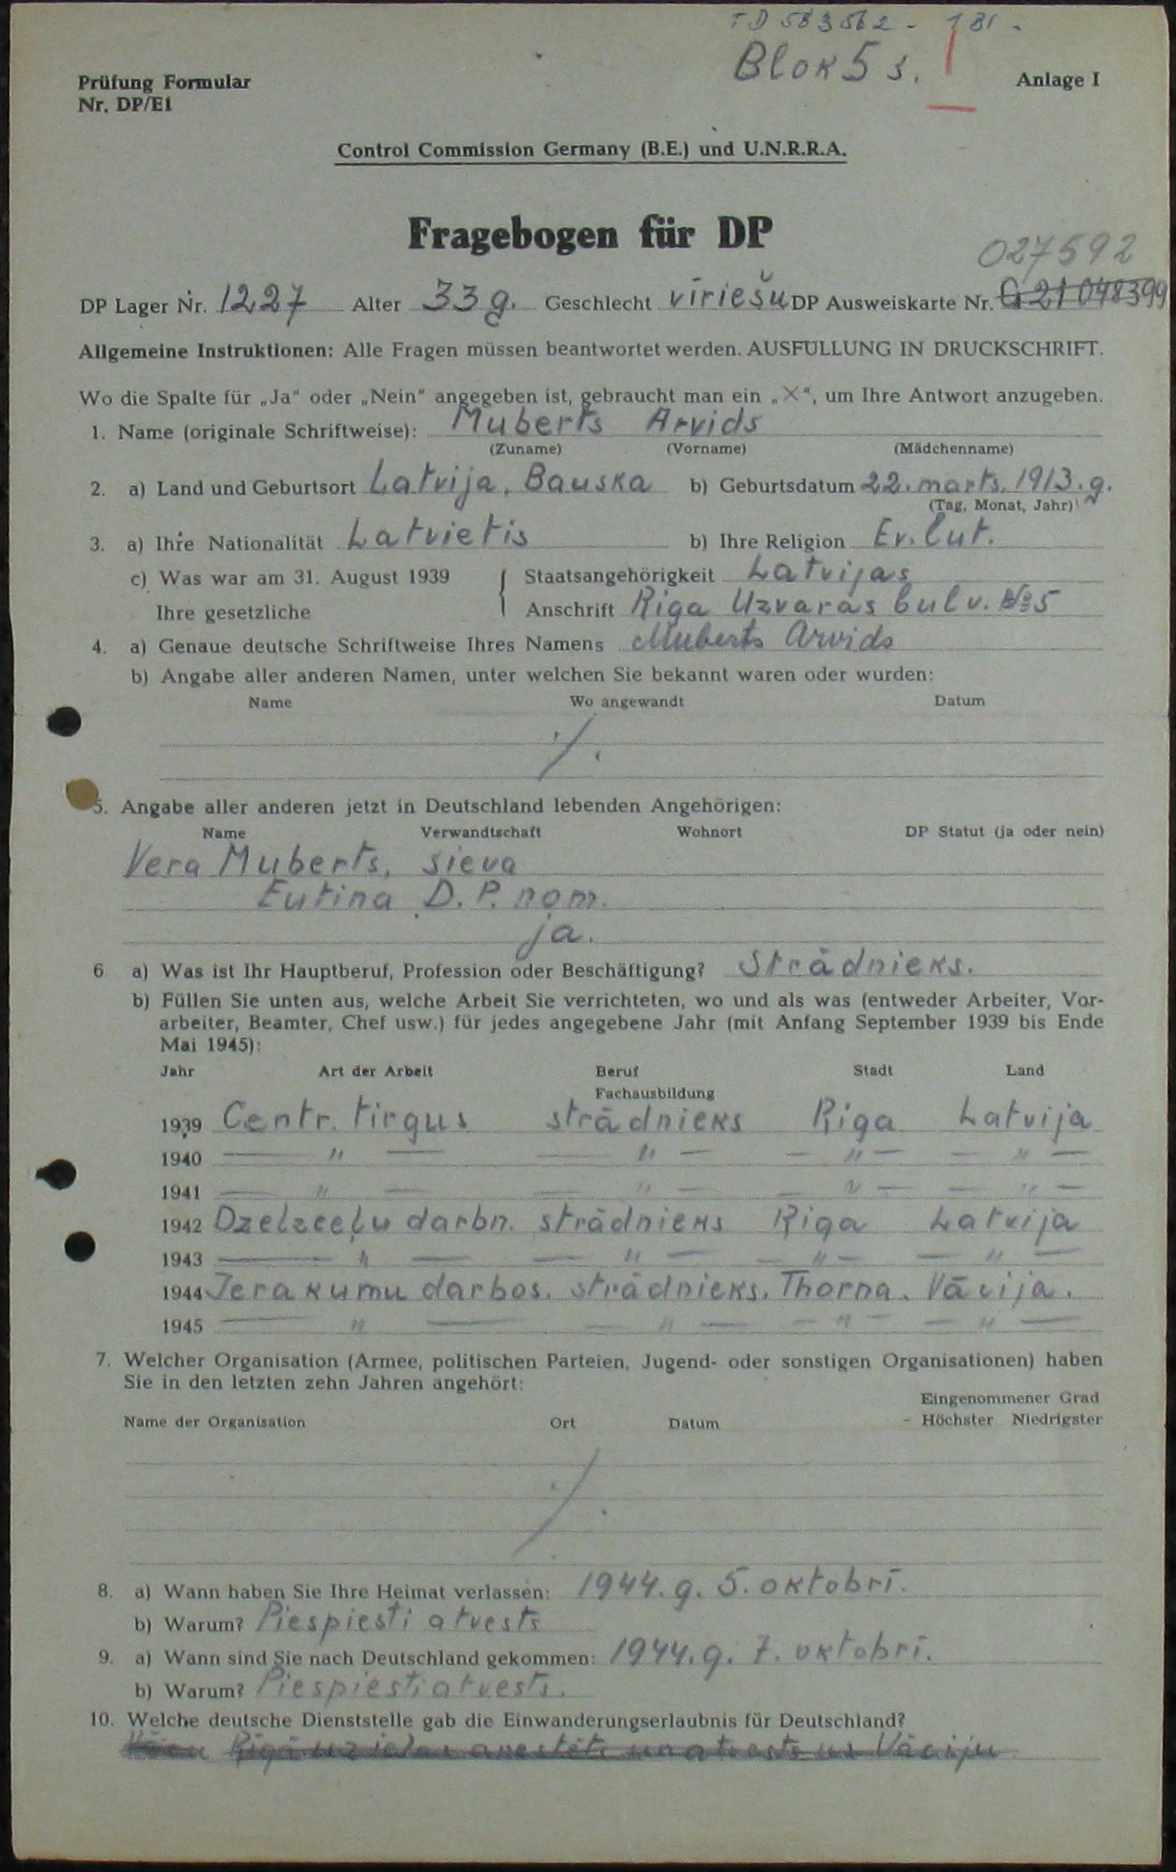 TD 583562 - 1 Bl -
Blok 5 s.
Prüfung Formular
Nr. DP/E1
Anlage I
Control Commission Germany (B.E.) und U.N.R.R.A.
Fragebogen für DP
027592
DP Lager Nr. 1227 Alter 33 g. Geschlecht vīriešu DP Ausweiskarte Nr. G 21 048399
Allgemeine Instruktionen: Alle Fragen müssen beantwortet werden. AUSFÜLLUNG IN DRUCKSCHRIFT.
Wo die Spalte für „Ja“ oder „Nein“ angegeben ist, gebraucht man ein „X“, um Ihre Antwort anzugeben.
1. Name (originale Schriftweise): Muberts Arvids
(Zuname) (Vorname) (Mädchenname)
2. a) Land und Geburtsort Latvija, Bauska b) Geburtsdatum 22. marts. 1913. g.
(Tag, Monat, Jahr)
3. a) Ihre Nationalität Latvietis b) Ihre Religion Ev. lut.
c) Was war am 31. August 1939 Staatsangehörigkeit Latvijas
Ihre gesetzliche Anschrift Riga Uzvaras bulv. № 5
4. a) Genaue deutsche Schriftweise Ihres Namens Muberts Arvids
b) Angabe aller anderen Namen, unter welchen Sie bekannt waren oder wurden:
Name Wo angewandt Datum
./.
5. Angabe aller anderen jetzt in Deutschland lebenden Angehörigen:
Name Verwandtschaft Wohnort DP Statut (ja oder nein)
Vera Muberts, sieva
Eutina D. P. nom.
ja.
6 a) Was ist Ihr Hauptberuf, Profession oder Beschäftigung? Strādnieks.
b) Füllen Sie unten aus, welche Arbeit Sie verrichteten, wo und als was (entweder Arbeiter, Vor-
arbeiter, Beamter, Chef usw.) für jedes angegebene Jahr (mit Anfang September 1939 bis Ende
Mai 1945):
Jahr Art der Arbeit Beruf Stadt Land
Fachausbildung
1939 Centr. tirgus strādnieks Riga Latvija
1940 — " — — " — — " — — " —
1941 — " — — " — — " — — " —
1942 Dzelzceļu darbn. strādnieks Riga Latvija
1943 — " — — " — — " — — " —
1944 Ierakumu darbos. strādnieks. Thorna. Vācija.
1945 — " — — " — — " — — " —
7. Welcher Organisation (Armee, politischen Parteien, Jugend- oder sonstigen Organisationen) haben
Sie in den letzten zehn Jahren angehört:
Eingenommener Grad
Name der Organisation Ort Datum - Höchster Niedrigster
./.
8. a) Wann haben Sie Ihre Heimat verlassen: 1944. g. 5. oktobrī.
b) Warum? Piespiesti atvests
9. a) Wann sind Sie nach Deutschland gekommen: 1944. g. 7. oktobrī.
b) Warum? Piespiesti atvests.
10. Welche deutsche Dienststelle gab die Einwanderungserlaubnis für Deutschland?
Rīgā uz ielas arestēts un atvests uz Vāciju